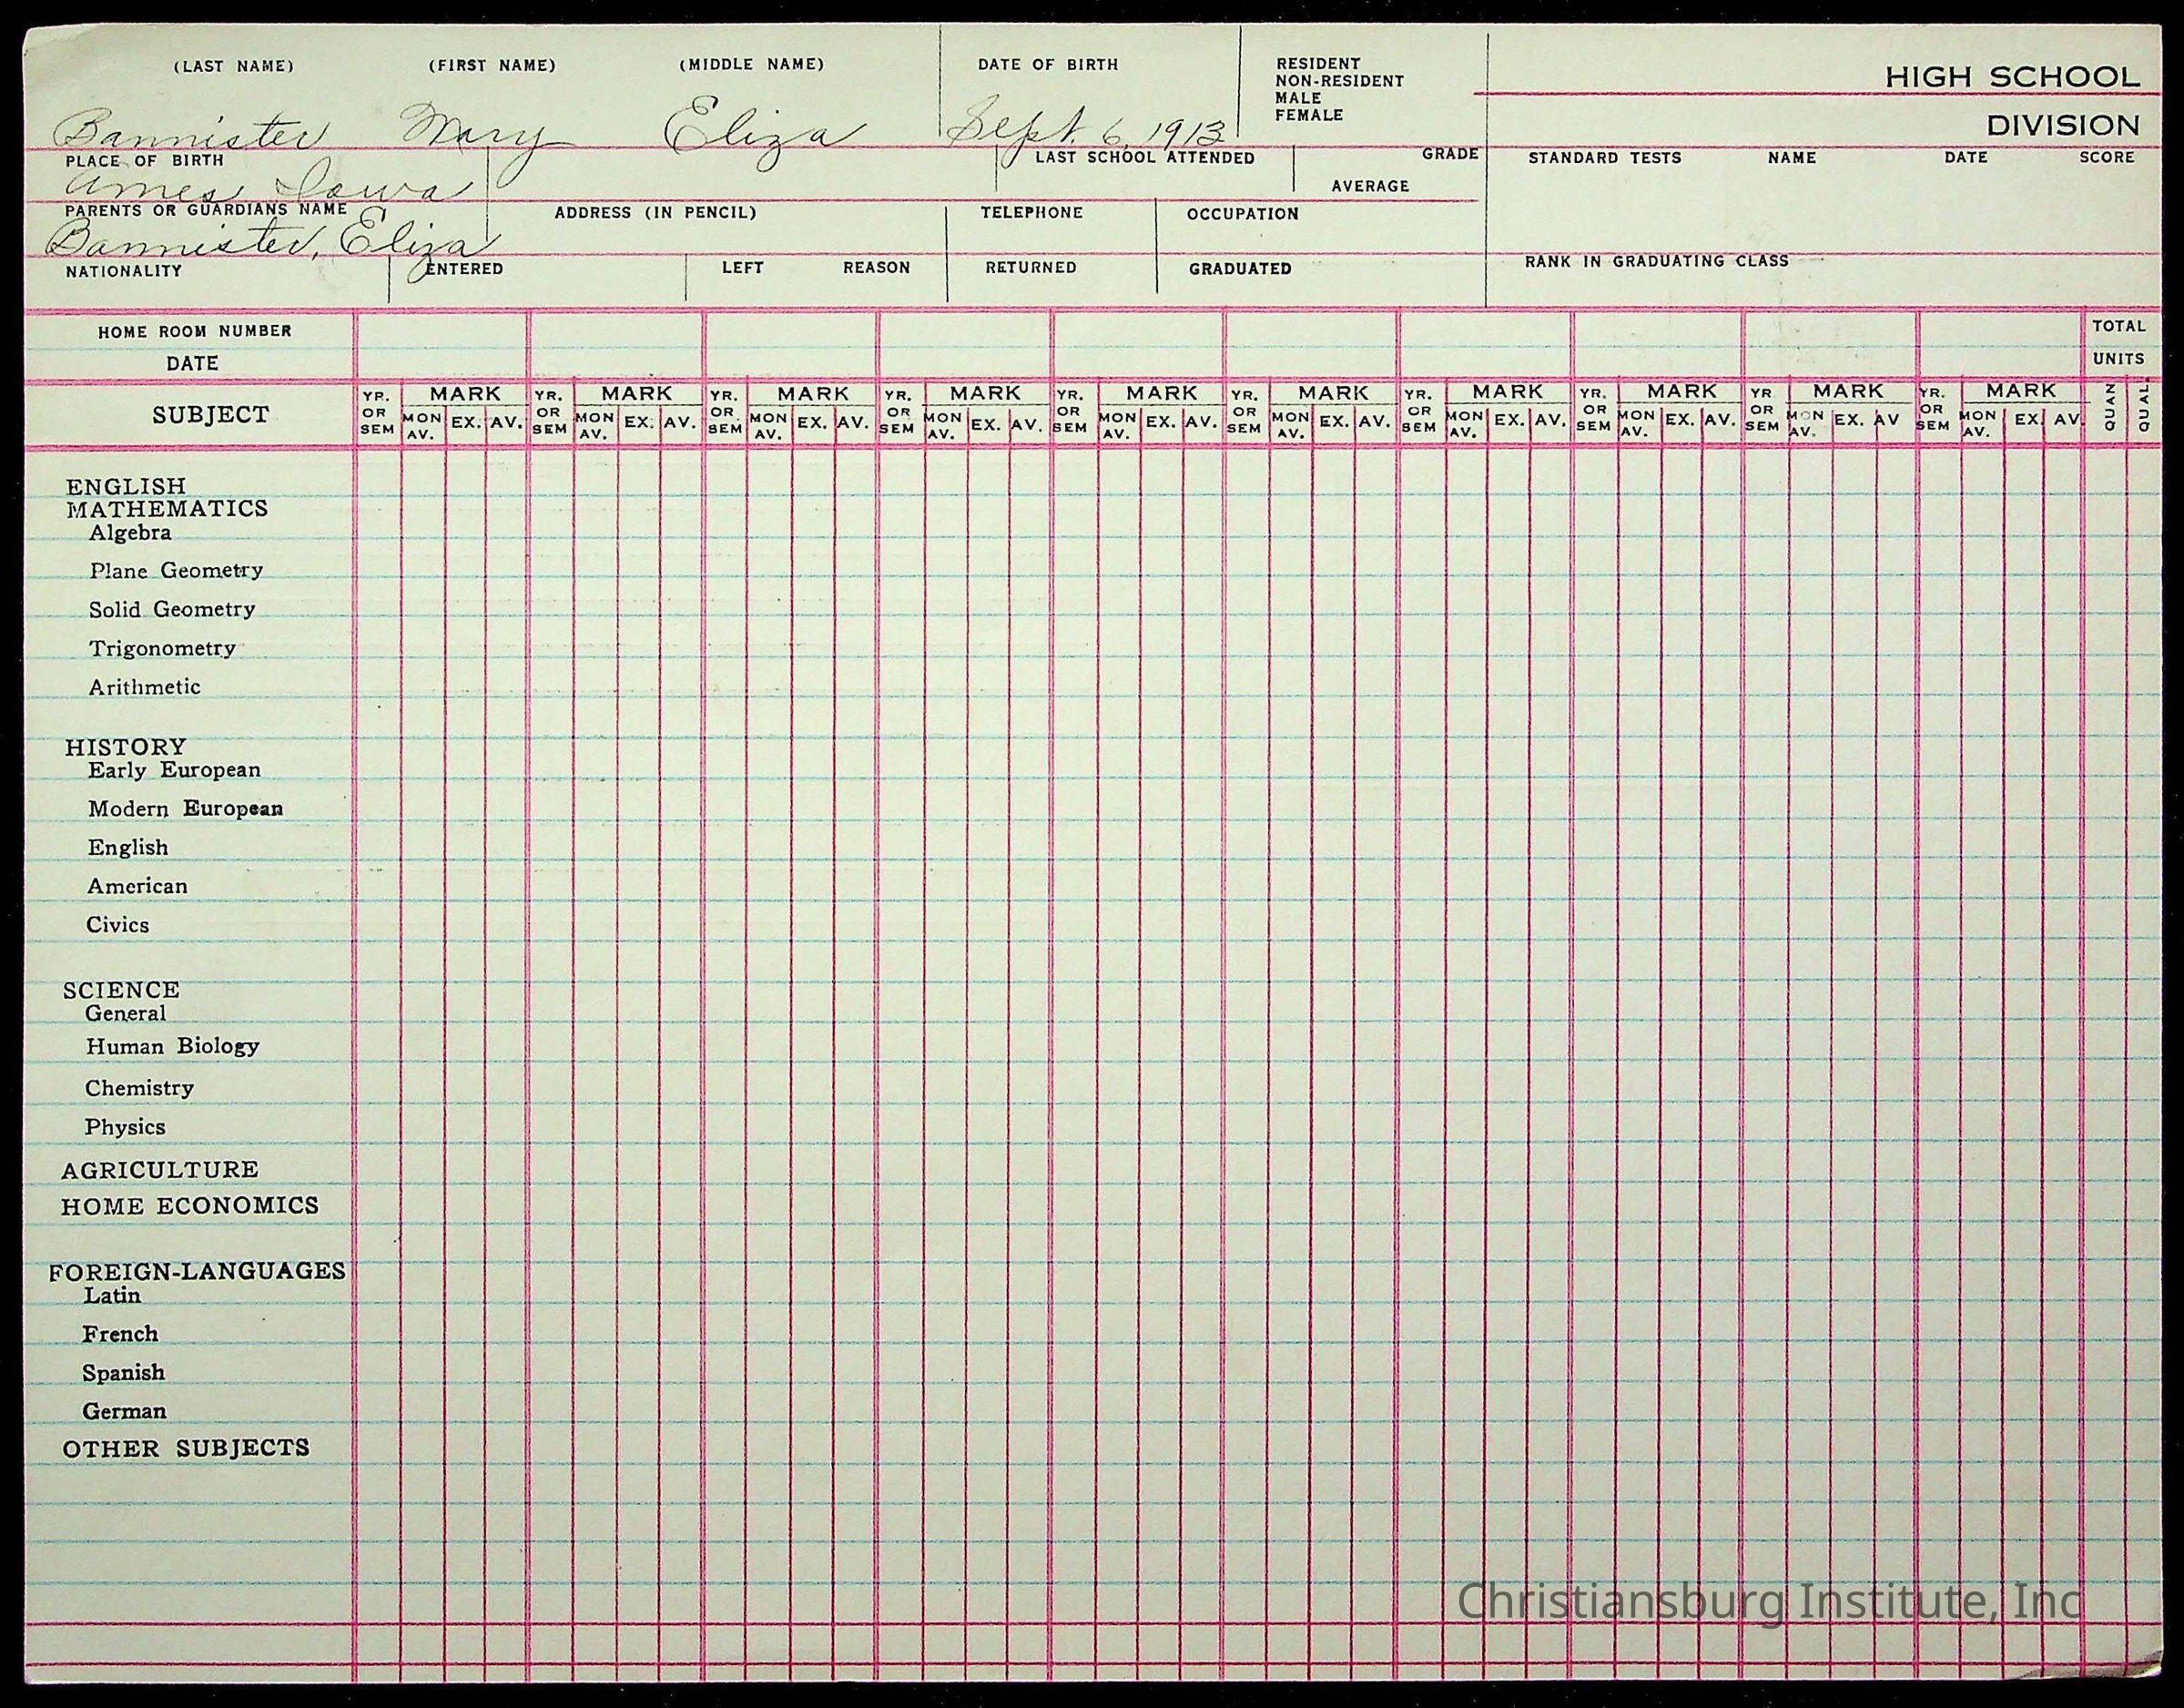 (LAST NAME) (FIRST NAME) (MIDDLE NAME) DATE OF BIRTH
RESIDENT
NON-RESIDENT
MALE
FEMALE
HIGH SCHOOL
DIVISION
Bannister Mary Eliza Sept. 6, 1913
PLACE OF BIRTH LAST SCHOOL ATTENDED GRADE
AVERAGE
STANDARD TESTS NAME DATE SCORE
Ames Iowa
PARENTS OR GUARDIANS NAME ADDRESS (IN PENCIL) TELEPHONE OCCUPATION
Bannister, Eliza
NATIONALITY ENTERED LEFT REASON RETURNED GRADUATED RANK IN GRADUATING CLASS
HOME ROOM NUMBER TOTAL
DATE UNITS
SUBJECT
YR. OR SEM MARK MON AV. EX. AV.
YR. OR SEM MARK MON AV. EX. AV.
YR. OR SEM MARK MON AV. EX. AV.
YR. OR SEM MARK MON AV. EX. AV.
YR. OR SEM MARK MON AV. EX. AV.
YR. OR SEM MARK MON AV. EX. AV.
YR. OR SEM MARK MON AV. EX. AV.
YR. OR SEM MARK MON AV. EX. AV.
YR OR SEM MARK MON AV. EX. AV
YR. OR SEM MARK MON AV. EX. AV.
QUAN QUAL.
ENGLISH
MATHEMATICS
Algebra
Plane Geometry
Solid Geometry
Trigonometry
Arithmetic
HISTORY
Early European
Modern European
English
American
Civics
SCIENCE
General
Human Biology
Chemistry
Physics
AGRICULTURE
HOME ECONOMICS
FOREIGN-LANGUAGES
Latin
French
Spanish
German
OTHER SUBJECTS
Christiansburg Institute, Inc